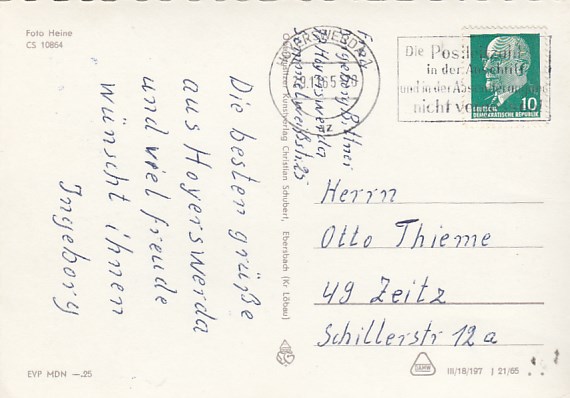 Foto Heine
CS 10864
Die besten grüße
aus Hoyerswerda
und viel freude
wünscht ihnen
Ingeborg
EVP MDN —.25
Oberlausitzer Kunstverlag Christian Schubert, Ebersbach (Kr Löbau)
Ingeborg
Hoyerswerda
HOYERSWERDA
Die Postleitzahl
in der Anschrift
und in der Absenderangabe
nicht vergessen
10
DEMOKRATISCHE REPUBLIK
Herrn
Otto Thieme
49 Zeitz
Schillerstr 12a
DAMW
III/18/197 J 21/65